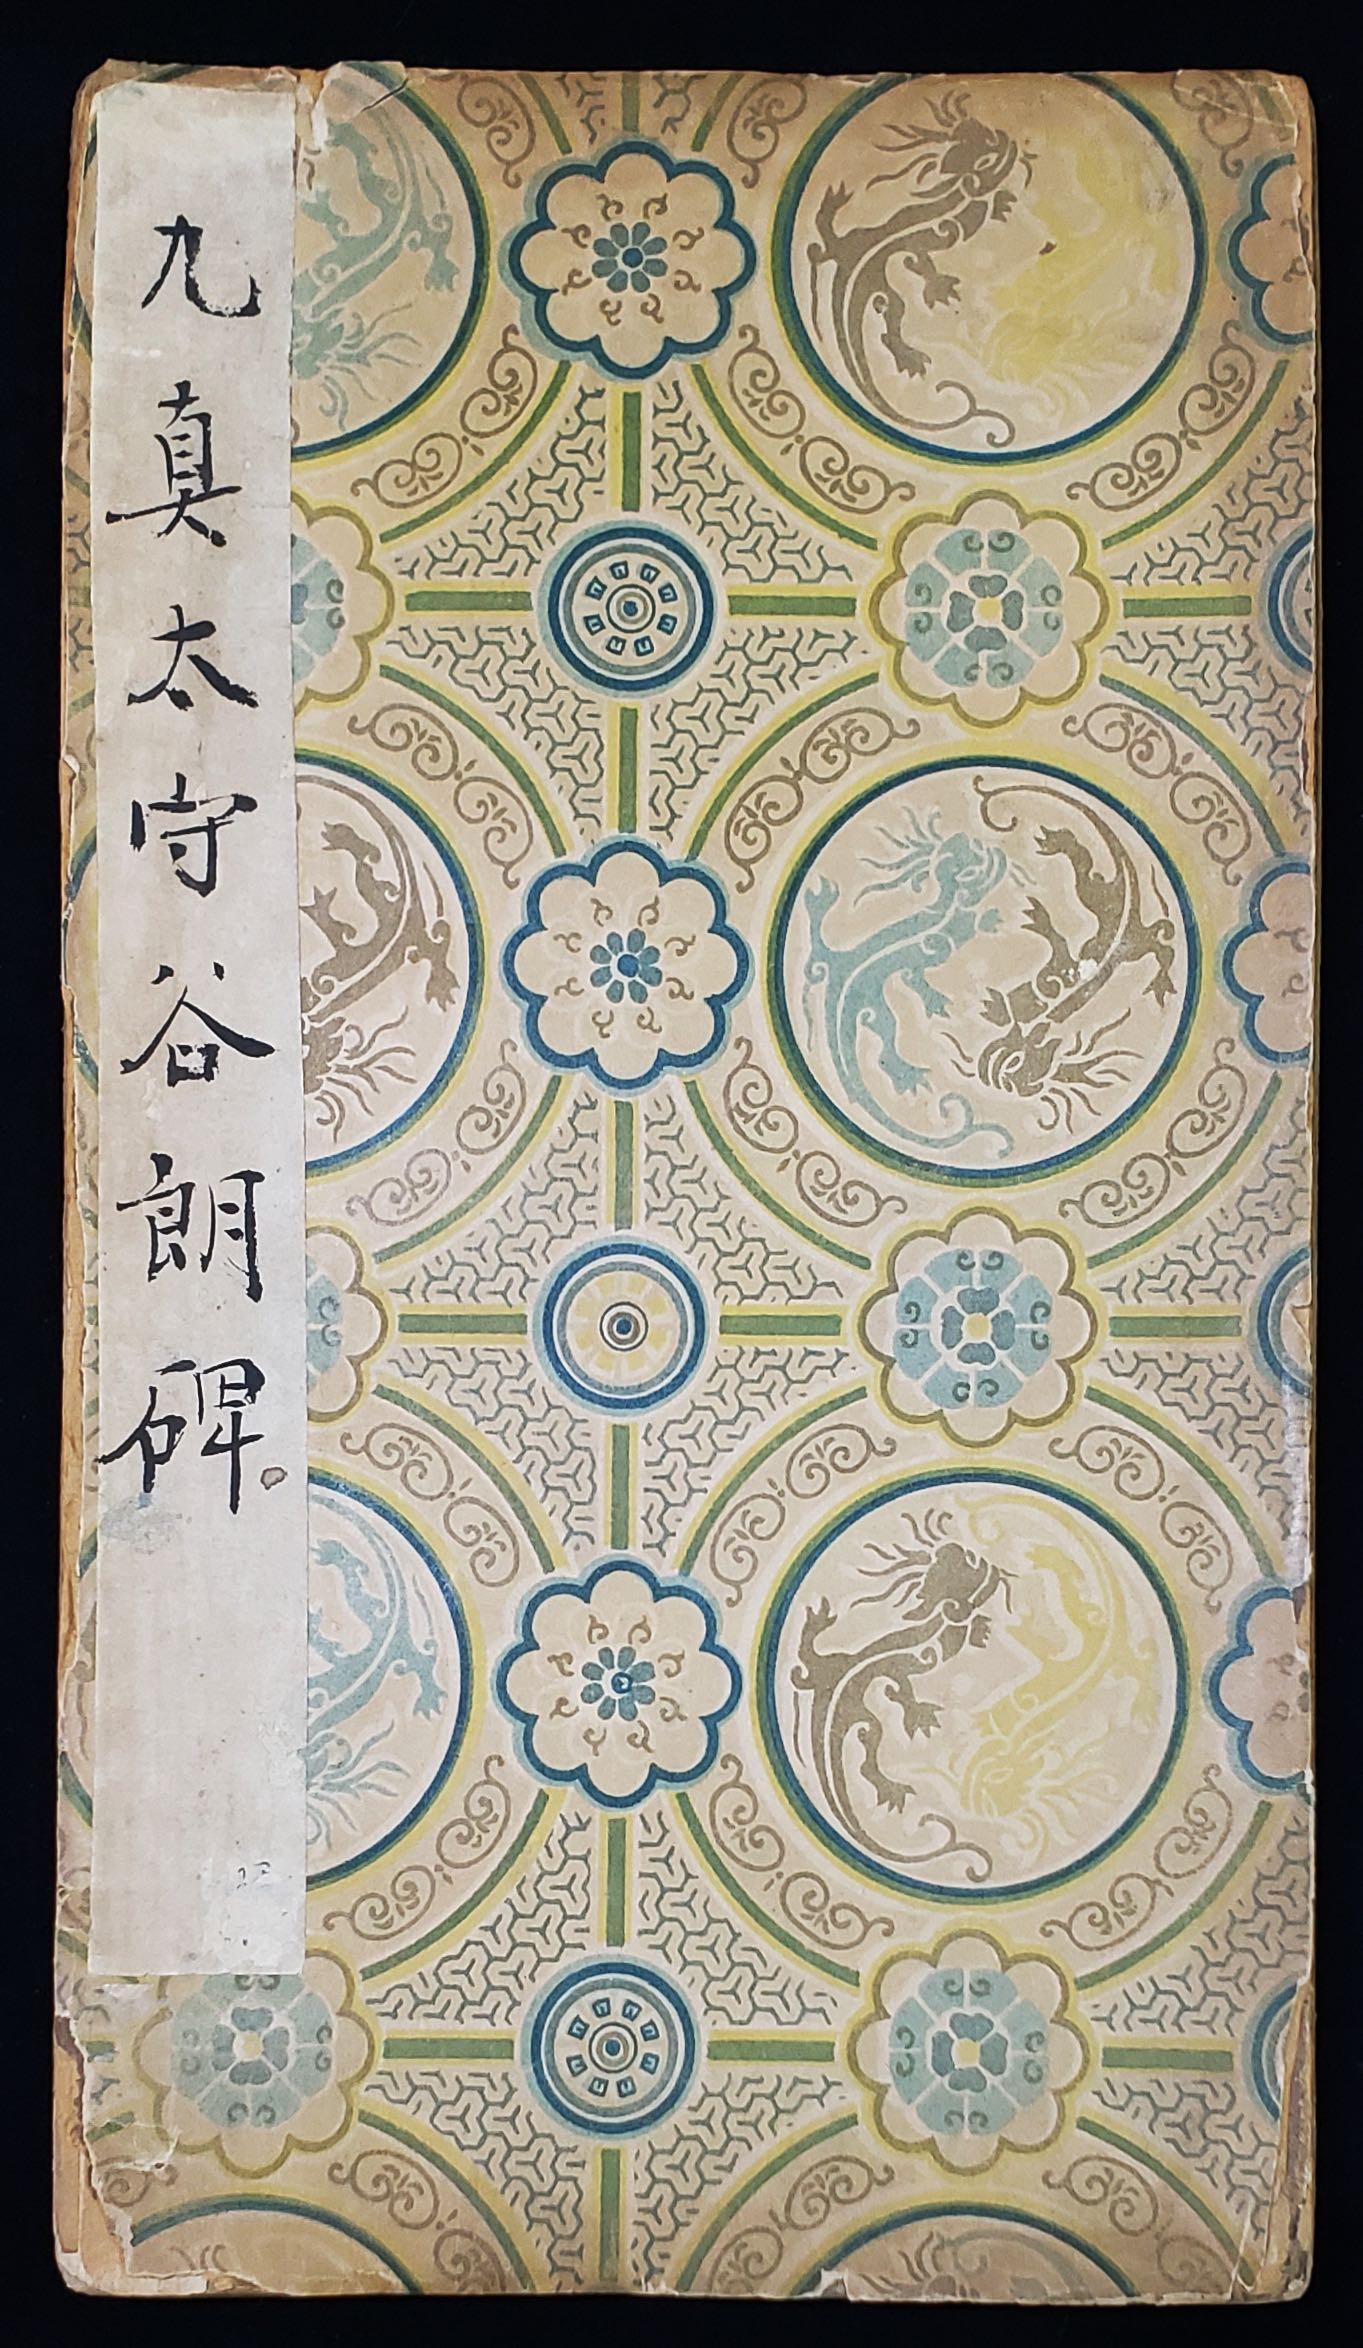 九真太守谷朗碑